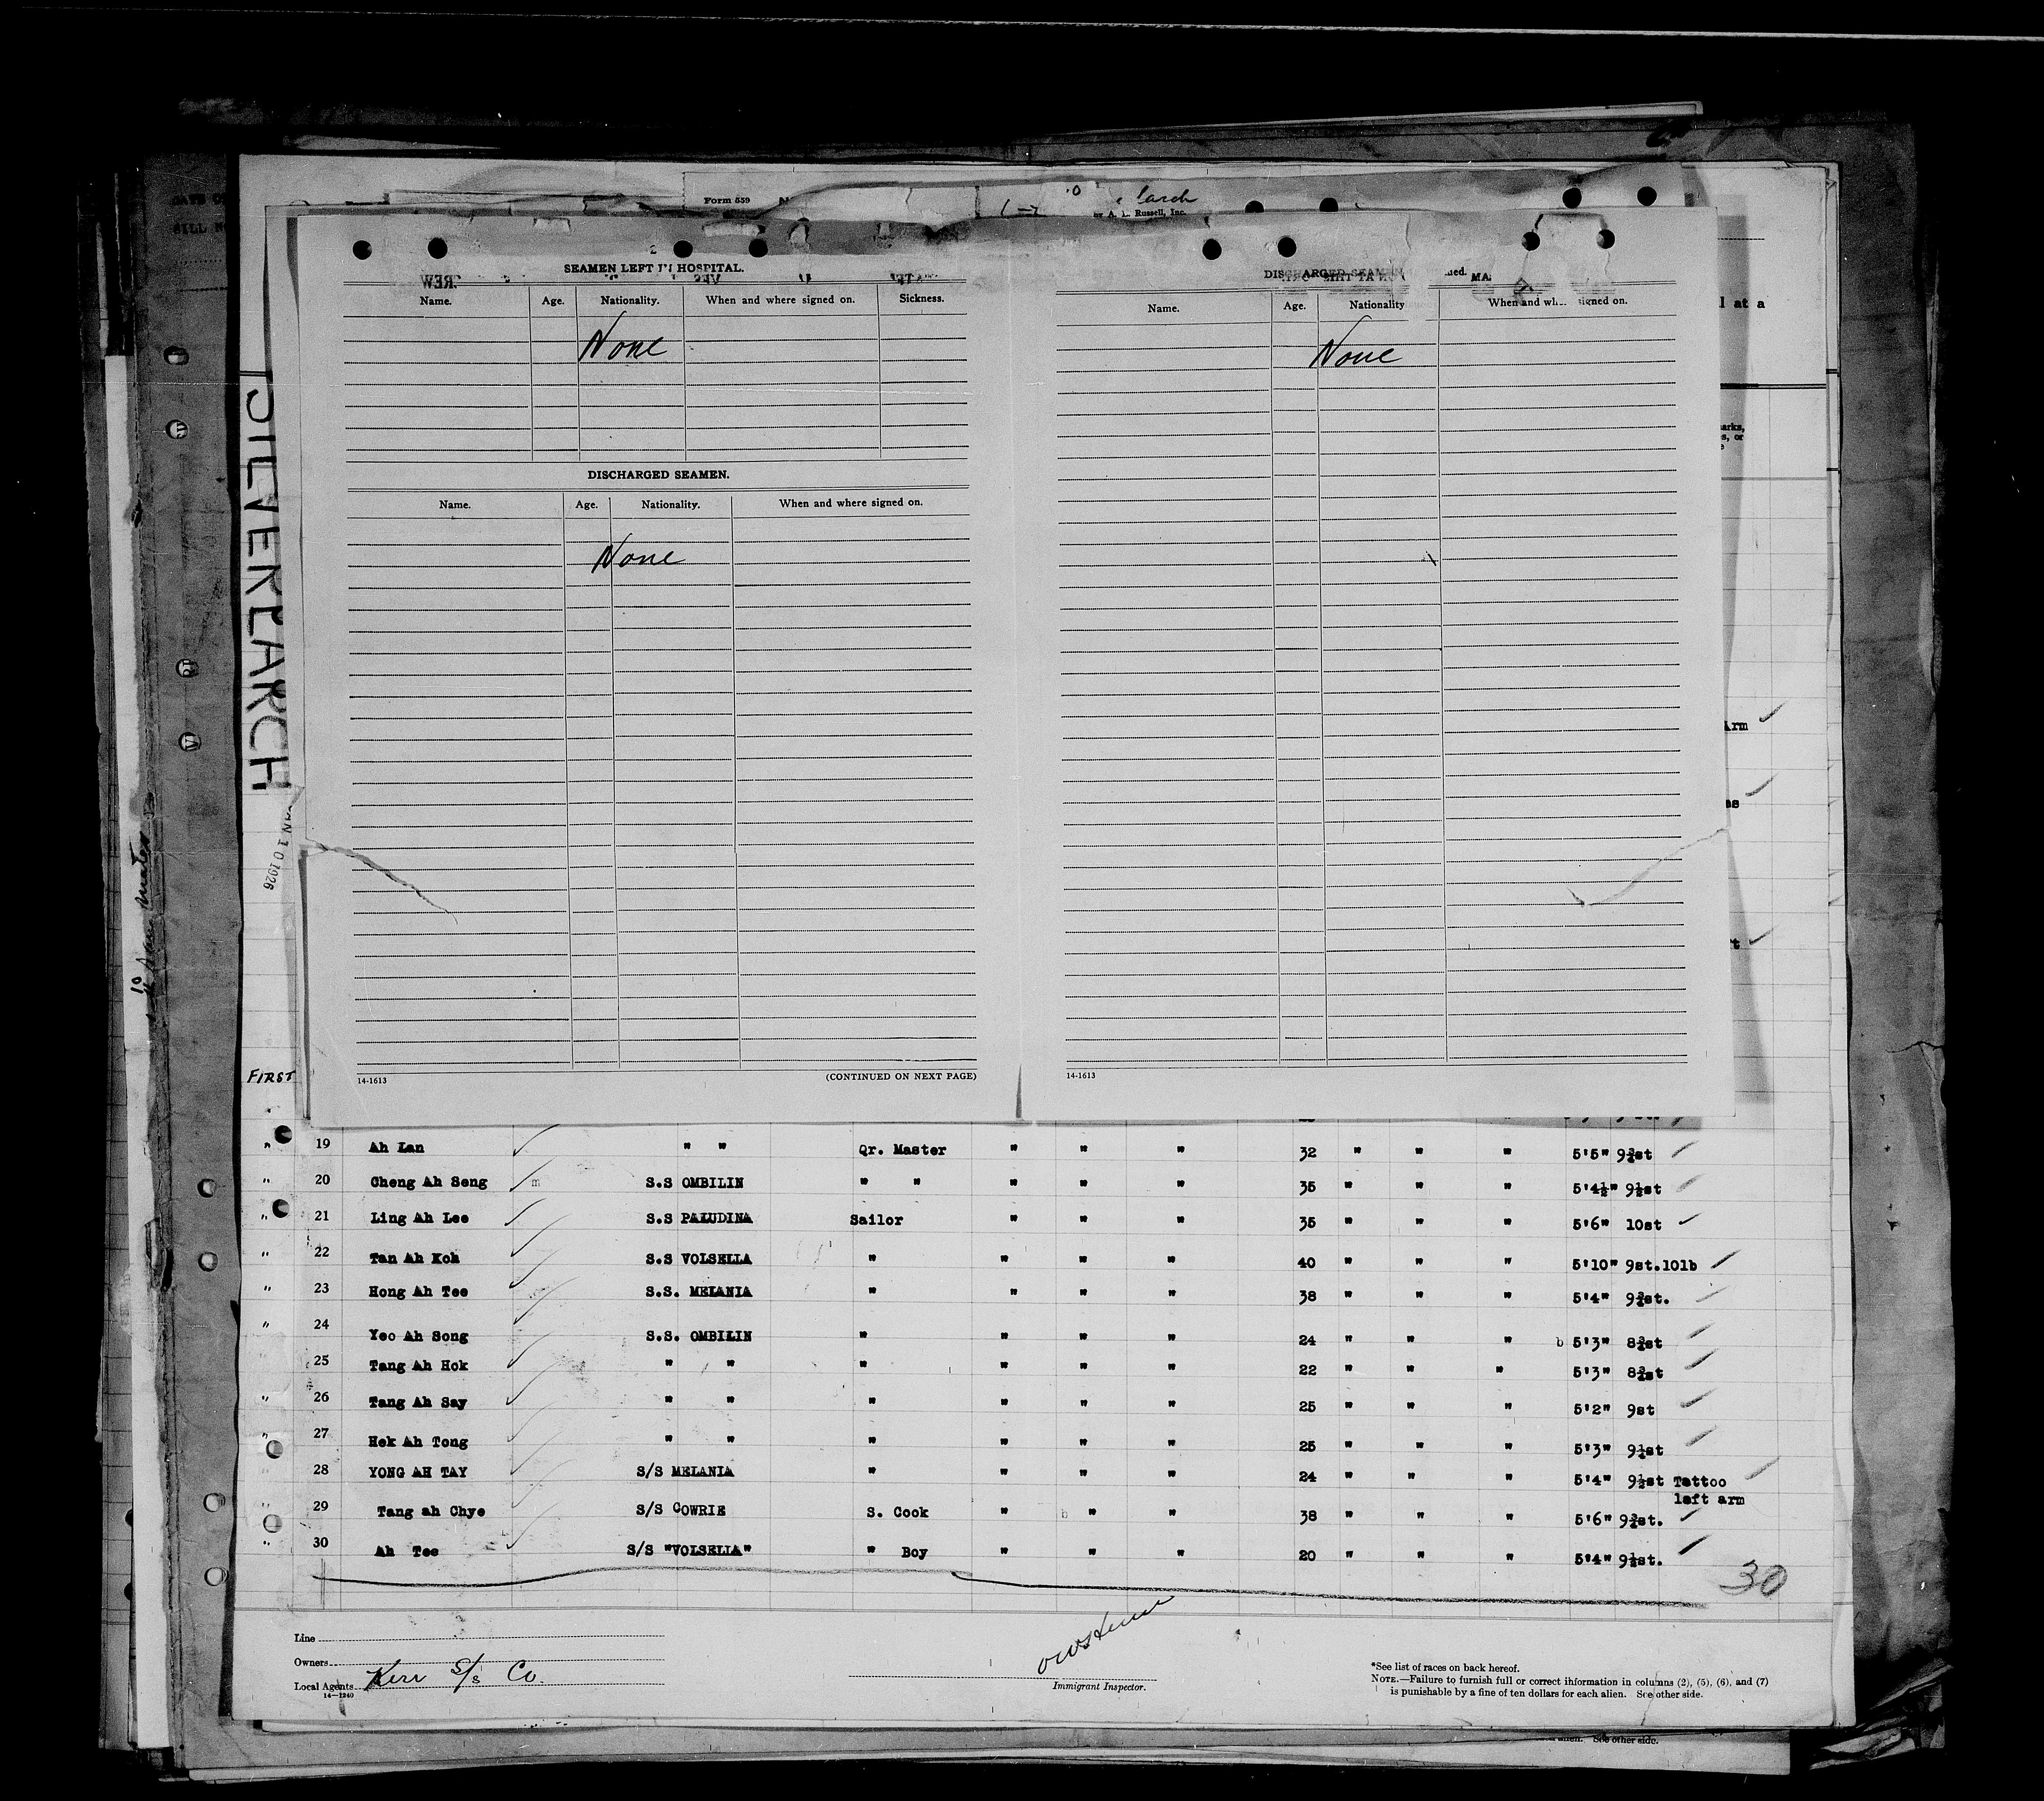 Form 559
larch
by A. L. Russell, Inc.
SEAMEN LEFT IN HOSPITAL.
Name. Age. Nationality. When and where signed on. Sickness.
None
DISCHARGED SEAMEN.
Name. Age. Nationality. When and where signed on.
None
14-1613 (CONTINUED ON NEXT PAGE)
DISCHARGED SEAMEN
MA
Name. Age. Nationality When and wh signed on.
None
14-1613
l at a
arks,
s, or
e
Arm
as
t
SILVERLARCH
JAN 10 1926
FIRST
" 19 Ah Lan " " Qr. Master " " " 32 " " " 5'5" 9¾st
" 20 Cheng Ah Seng m S.S OMBILIN " " " " " 35 " " " 5'4½" 9½st
" 21 Ling Ah Lee S.S PALUDINA Sailor " " " 35 " " " 5'6" 10st
" 22 Tan Ah Koh S.S VOLSELLA " " " " 40 " " " 5'10" 9st.10lb
" 23 Hong Ah Tee S.S. MELANIA " " " " 38 " " " 5'4" 9¾st.
" 24 Yeo Ah Song S.S. OMBILIN " " " " 24 " " " b 5'3" 8¾st
25 Tang Ah Hok " " " " " " 22 " " " 5'3" 8¾st
" 26 Tang Ah Say " " " " " " 25 " " " 5'2" 9st
" 27 Hek Ah Tong " " " " " " 25 " " " 5'3" 9½st
" 28 YONG AH TAY S/S MELANIA " " " " 24 " " " 5'4" 9½st Tattoo
left arm
" 29 Tang ah Chye S/S COWRIE S. Cook " b " " 38 " " " 5'6" 9¾st.
" 30 Ah Tee S/S "VOLSELLA" " Boy " " " 20 " " " 5'4" 9½st.
30
Line
Owners
Local Agents Kerr S/S Co.
14-1240
Immigrant Inspector.
*See list of races on back hereof.
NOTE.—Failure to furnish full or correct information in columns (2), (5), (6), and (7)
is punishable by a fine of ten dollars for each alien. See other side.
alien. See other side.